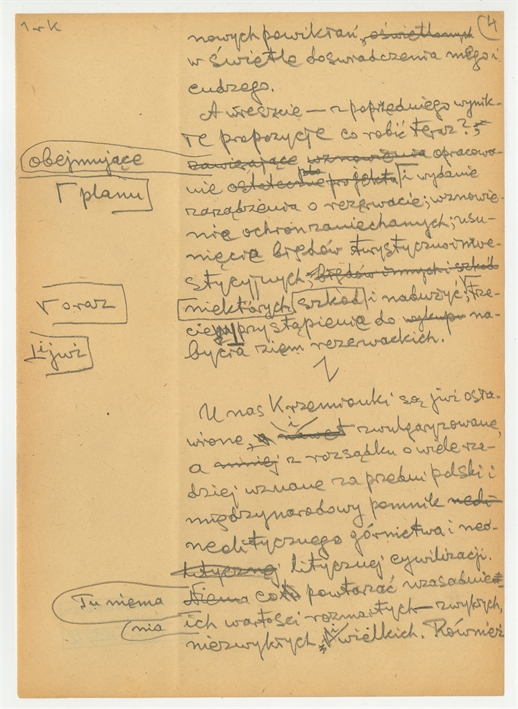 1 rk
4
nowych powikłań, oświetlonych
w świetle doświadczenia mego i
cudzego.
A wreszcie — z poprzedniego wynik-
łe propozycje co robić teraz?
obejmujące
zawierające wznowienia opracowa-
Γ planu
nie ostateczne projektu i wydanie
zarządzenia o rezerwacie; wznowie-
nie ochron zaniechanych; usu-
nięcia błędów turystyczno inwe-
stycyjnych, błędów innych i szkód
√ oraz
niektórych szkód i nadużyć; trze-
i już
cie przystąpienia do wykupu na-
bycia ziem rezerwackich.
U nas Krzemionki są już osła-
wione, i nawet zwulgaryzowane,
a mniej z rozsądku o wiele rza-
dziej uznane za przedni polski i
międzynarodowy pomnik neoli
neolitycznego górnictwa i neo-
litycznej litycznej cywilizacji.
Tu niema
Niema co powtarzać uzasadnie
nia
ich wartości rozmaitych — zwykłych,
niezwykłych, i wielkich. Również